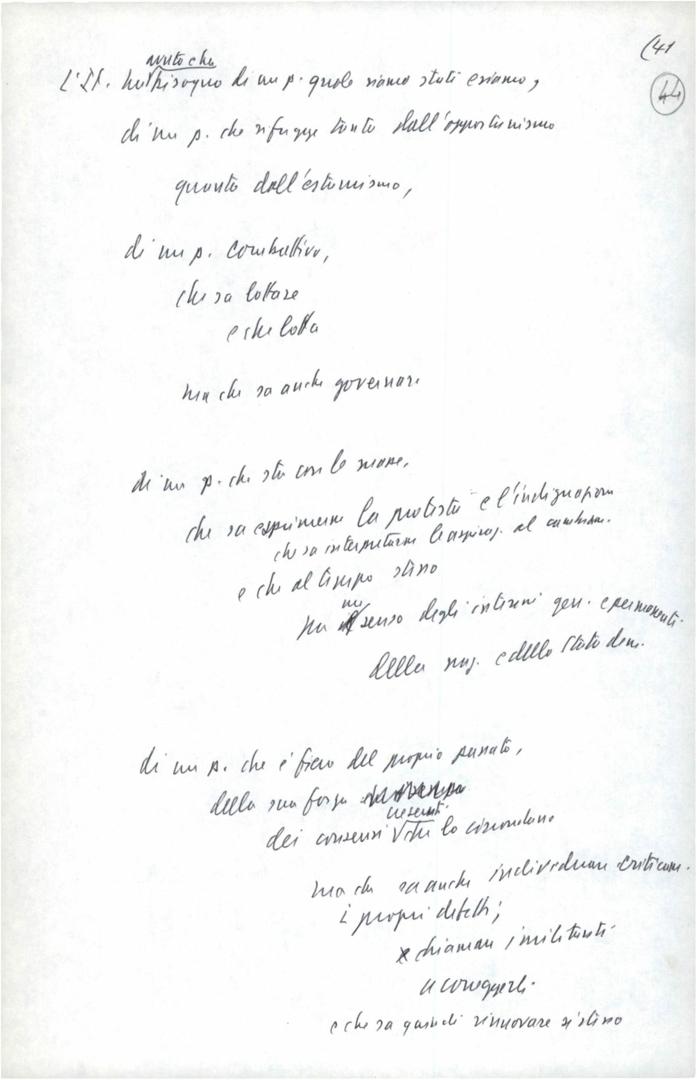 (41
44
avuto che
L'It. ha bisogno di un p. quale siamo stati e siamo,
di un p. che rifugge tanto dall'opportunismo
quanto dall'estremismo,
di un p. combattivo,
che sa lottare
e che lotta
ma che sa anche governare
di un p. che sta con le masse,
che sa esprimerne la protesta e l'indignazione
che sa interpretarne le aspiraz. al cambiam.
e che al tempo stesso
ha senso degli interessi gen. e permanenti
della naz. e dello Stato dem.
di un p. che è fiero del proprio passato,
della sua forza
crescenti
dei consensi che lo circondano
ma che sa anche individuare criticam.
i propri difetti;
chiamare i militanti
a correggerli.
e che sa quindi rinnovare sé stesso